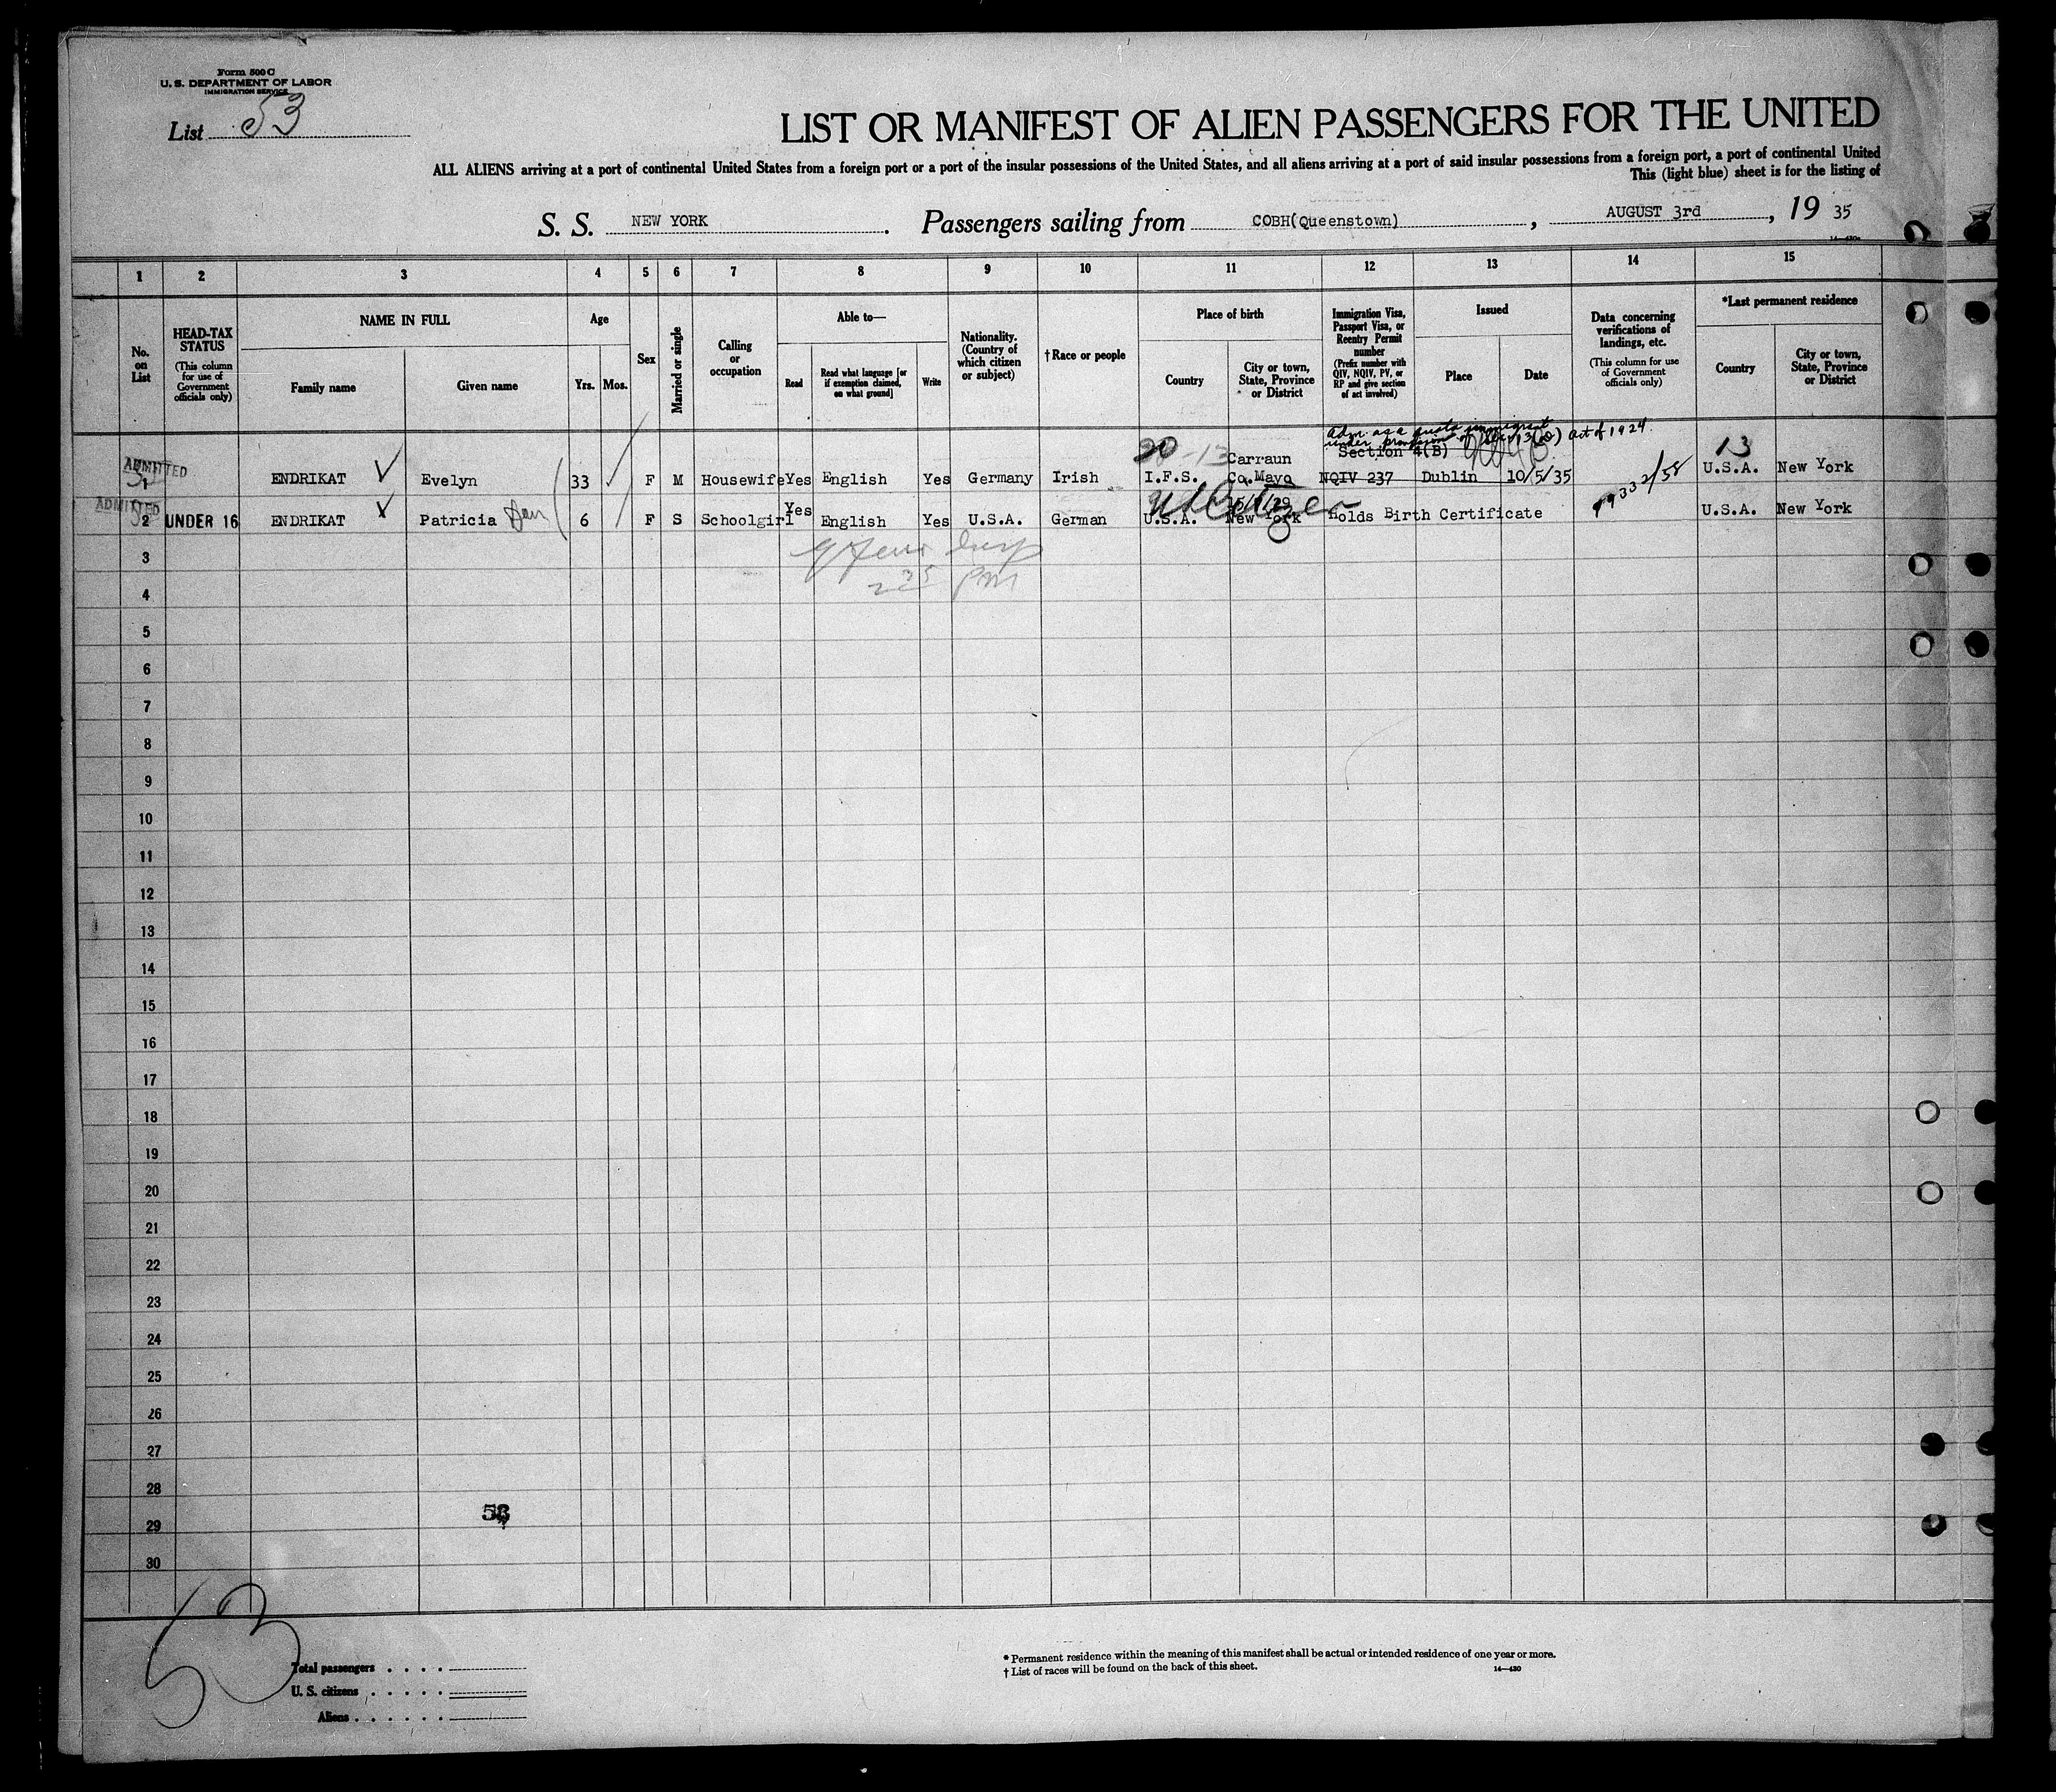 Form 500 C
U. S. DEPARTMENT OF LABOR
IMMIGRATION SERVICE
List 53
LIST OR MANIFEST OF ALIEN PASSENGERS FOR THE UNITED
ALL ALIENS arriving at a port of continental United States from a foreign port or a port of the insular possessions of the United States, and all aliens arriving at a port of said insular possessions from a foreign port, a port of continental United
This (light blue) sheet is for the listing of
S. S. NEW YORK. Passengers sailing from COBH(Queenstown), AUGUST 3rd, 19 35
1 2 3 4 5 6 7 8 9 10 11 12 13 14 15
No. on List
HEAD-TAX STATUS
(This column for use of Government officials only)
NAME IN FULL
Family name
Given name
Age
Yrs. Mos.
Sex
Married or single
Calling or occupation
Able to—
Read
Read what language [or if exemption claimed, on what ground]
Write
Nationality. (Country of which citizen or subject)
†Race or people
Place of birth
Country
City or town, State, Province or District
Immigration Visa, Passport Visa, or Reentry Permit number
(Prefix number with QIV, NQIV, PV, or RP and give section of act involved)
Issued
Place
Date
Data concerning verifications of landings, etc.
(This column for use of Government officials only)
*Last permanent residence
Country
City or town, State, Province or District
Adm. as a quota immigrant
under provision of Sec. 13(d) Act of 1924
20 -13 Section 4(B) 13
ADMITTED 1 ENDRIKAT Evelyn 33 F M Housewife Yes English Yes Germany Irish I.F.S. Carraun Co.Mayo NQIV 237 Dublin 10/5/35 U.S.A. New York
ADMITTED 2 UNDER 16 ENDRIKAT Patricia 6 F S Schoolgirl Yes English Yes U.S.A. German U.S.A. New York Holds Birth Certificate U.S.A. New York
US Citizen
2 35 PM
3
4
5
6
7
8
9
10
11
12
13
14
15
16
17
18
19
20
21
22
23
24
25
26
27
28
29
30
53
Total passengers
U. S. citizens
Aliens
* Permanent residence within the meaning of this manifest shall be actual or intended residence of one year or more.
† List of races will be found on the back of this sheet.
14—430